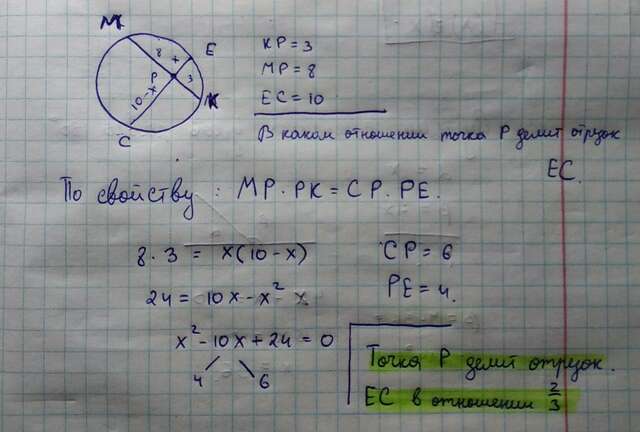 M
E
8
x
P
3
10-x
K
C
KP = 3
MP = 8
EC = 10
В каком отношении точка P делит отрузок
EC.
По свойству: MP · PK = CP · PE.
8 · 3 = x(10 - x)
24 = 10x - x²
x² - 10x + 24 = 0
4 6
CP = 6
PE = 4.
Точка P делит отрузок.
EC в отношении 2/3